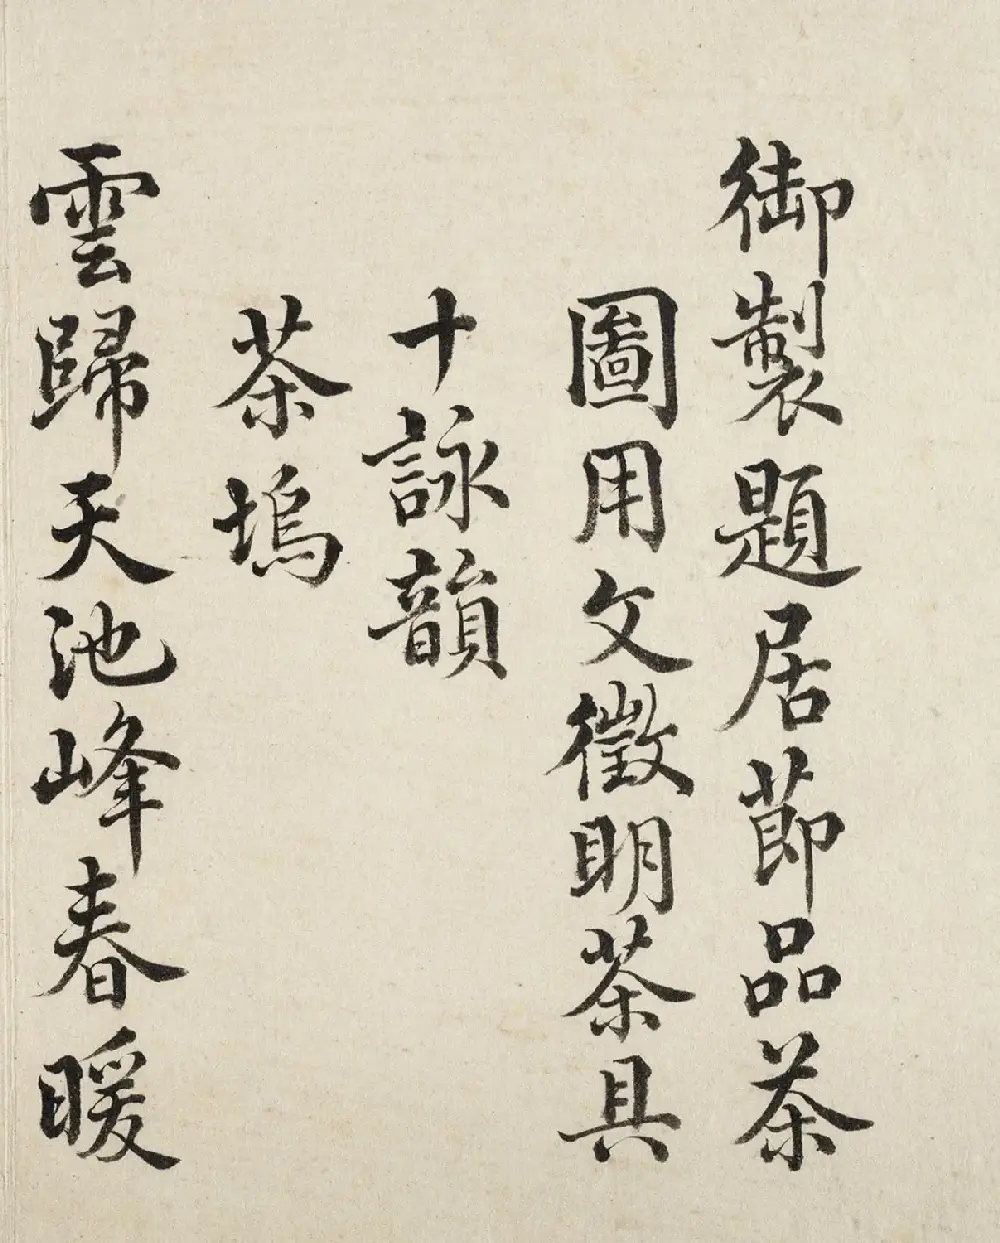 御製題居節品茶
圖用文徵明茶具
十詠韻
茶塢
雲歸天池峰春暖